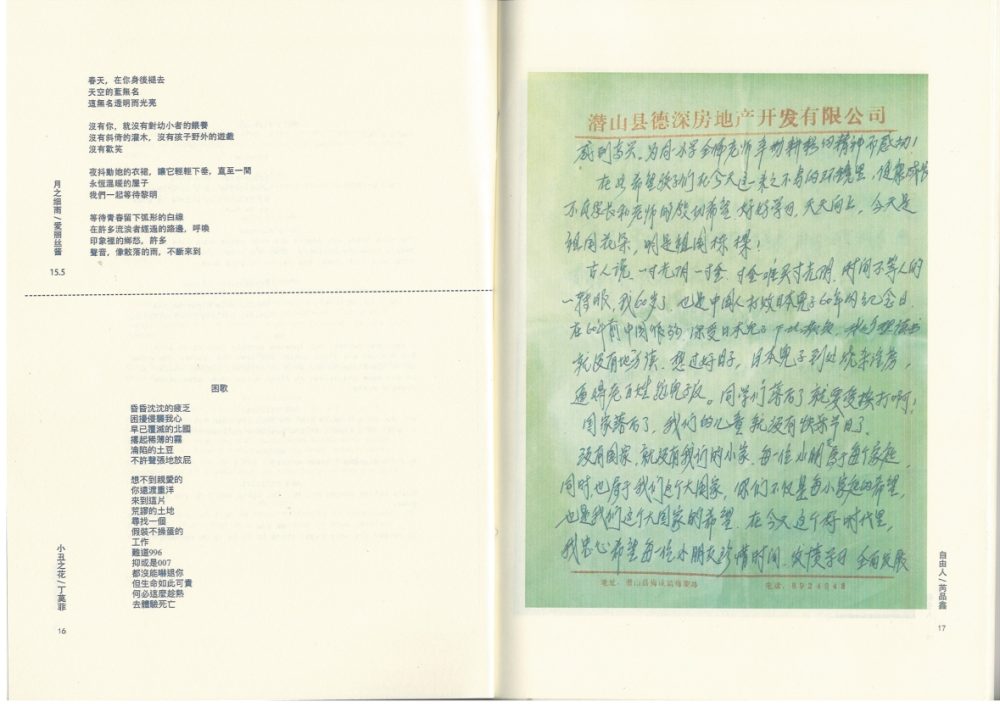 春天，在你身後褪去
天空的藍無名
這無名透明而光亮
沒有你，就沒有對幼小者的餵養
沒有斜倚的灌木，沒有孩子野外的遊戲
沒有歡笑
夜抖動她的衣裙，讓它輕輕下垂，直至一間
永恆溫暖的屋子
我們一起等待黎明
等待青春留下弧形的白線
在許多流浪者經過的路邊，呼喚
印象裡的鄉愁，許多
聲音，像散落的雨，不斷來到
月之細雨/愛麗絲醬
15.5
困歌
昏昏沈沈的疲乏
困擾侵襲我心
早已覆滅的北國
攏起稀薄的霧
淪陷的土豆
不許聲張地放屁
想不到親愛的
你遠渡重洋
來到這片
荒謬的土地
尋找一個
假裝不操蛋的
工作
難道996
抑或是007
都沒能嚇退你
但生命如此可貴
何必這麼趁熱
去體驗死亡
小丑之花/丁莫菲
16
潜山县德深房地产开发有限公司
感到高兴。为同小学全体老师辛勤耕耘的精神而感动！
在此希望孩子们在今天这一来之不易的环境里，健康成长
不负家长和老师的殷切希望，好好学习，天天向上，今天是
祖国花朵，明是祖国栋樑！
古人说，一寸光阴一寸金，寸金难买寸光阴，时间不等人的
一转眼，我60岁了，也是中国人打败日本鬼子60年的纪念日，
在60年前中国佬弱，深受日本鬼子
就没有地方读，想过好日子，日本鬼子到处烧杀淫虏，
逼得老百姓。同学们落后了就要受挨打啊！
国家落后了，我们的儿童就没有快乐节日了。
没有国家，就没有我们的小家，每一位小朋属于每个家庭，
同时，也属于我们这个大国家，你们不仅是每小家庭的希望，
也是我们这个大国家的希望，在今天这个好时代里，
我衷心希望每一位小朋友珍惜时间，发愤学习，全面发展
地址：潜山县梅城镇
电话：8924848
自由人/芮品鑫
17